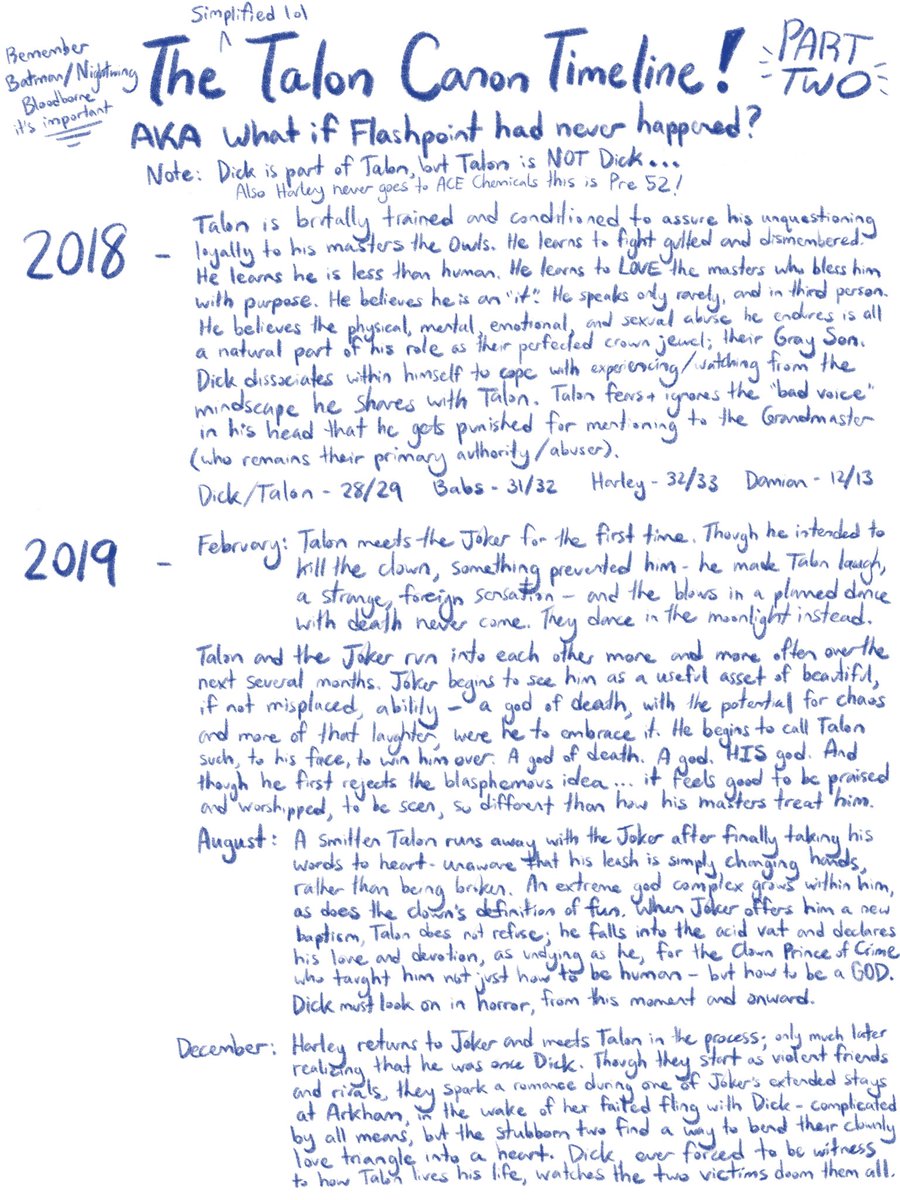 Simplified lol
^
The Talon Canon Timeline!
PART
TWO
Remember
Batman/Nightwing
Bloodborne
it's important
AKA What if Flashpoint had never happened?
Note: Dick is part of Talon, but Talon is NOT Dick...
Also Harley never goes to ACE Chemicals this is Pre 52!
2018 - Talon is brutally trained and conditioned to assure his unquestioning
loyally to his masters the Owls. He learns to fight gutted and dismembered.
He learns he is less than human. He learns to LOVE the masters who bless him
with purpose. He believes he is an "it". He speaks only rarely, and in third person.
He believes the physical, mental, emotional, and sexual abuse he endures is all
a natural part of his role as their perfected crown jewel; their Gray Son.
Dick dissociates within himself to cope with experiencing/watching from the
mindscape he shares with Talon. Talon fears + ignores the "bad voice"
in his head that he gets punished for mentioning to the Grandmaster
(who remains their primary authority/abuser).
Dick/Talon - 28/29 Babs - 31/32 Harley - 32/33 Damian - 12/13
2019 - February: Talon meets the Joker for the first time. Though he intended to
kill the clown, something prevented him - he made Talon laugh,
a strange, foreign sensation - and the blows in a planned dance
with death never come. They dance in the moonlight instead.
Talon and the Joker run into each other more and more often over the
next several months. Joker begins to see him as a useful asset of beautiful,
if not misplaced, ability - a god of death, with the potential for chaos
and more of that laughter, were he to embrace it. He begins to call Talon
such, to his face, to win him over. A god of death. A god. HIS god. And
though he first rejects the blasphemous idea... it feels good to be praised
and worshipped, to be seen, so different than how his masters treat him.
August: A smitten Talon runs away with the Joker after finally taking his
words to heart - unaware that his leash is simply changing hands,
rather than being broken. An extreme god complex grows within him,
as does the clown's definition of fun. When Joker offers him a new
baptism, Talon does not refuse; he falls into the acid vat and declares
his love and devotion, as undying as he, for the Clown Prince of Crime
who taught him not just how to be human - but how to be a GOD.
Dick must look on in horror, from this moment and onward.
December: Harley returns to Joker and meets Talon in the process; only much later
realizing that he was once Dick. Though they start as violent friends
and rivals, they spark a romance during one of Joker's extended stays
at Arkham, in the wake of her failed fling with Dick - complicated
by all means, but the stubborn two find a way to bend their clownly
love triangle into a heart. Dick, ever forced to be witness
to how Talon lives his life, watches the two victims doom them all.